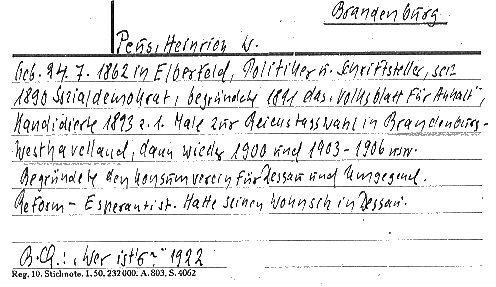 Brandenburg
Peus, Heinrich W.
Geb. 24.7.1862 in Elberfeld, Politiker u. Schriftsteller, seit
1890 Sozialdemokrat, begründete 1891 das „Volksblatt für Anhalt",
Kandidierte 1893 z. 1. Male zur Reichstagswahl in Brandenburg-
Westhavelland, dann wieder 1900 und 1903-1906 usw.
Begründete den Konsumverein für Dessau und Umgegend.
Reform- Esperantist. Hatte seinen Wohnsitz in Dessau.
B.Q.: „Wer ist's?" 1922
Reg. 10. Stichnote. I. 50. 232 000. A. 803. S. 4062